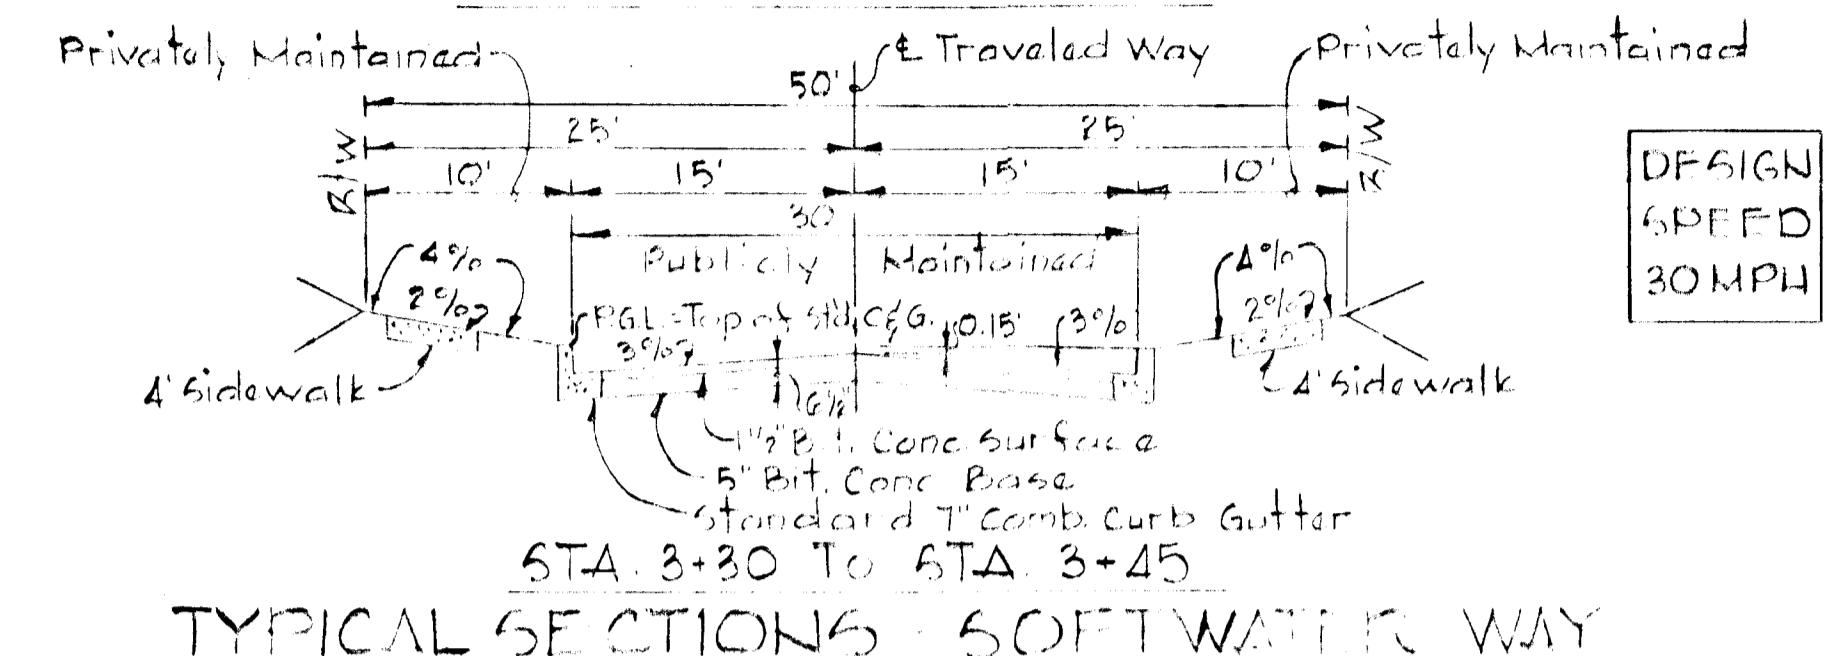 Privately Maintained
℄ Traveled Way
Privately Maintained
50'
25'
25'
R/W
R/W
10'
15'
15'
10'
30
Publicly Maintained
DESIGN
SPEED
30 MPH
4%
2%
4%
2%
P.G.L.=Top of Std. C&G.
0.15'
3%
3%
4' Sidewalk
4' Sidewalk
6½"
1½" Bit. Conc Surface
5" Bit. Conc Base
Standard 7" Comb. Curb Gutter
STA. 3+30 To STA. 3+45
TYPICAL SECTIONS SOFTWATER WAY